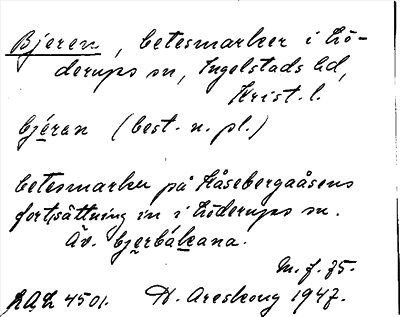 Bjeren, betesmarker i Lö-
derups sn, Ingelstads hd,
Krist. l.
bjeran (best. n. pl.)
betesmarker på Kåsebergaåsens
fortsättning in i Löderups sn.
Äv. bjerbakana.
M. f. 75.
LAL 4501. H. Areskoug 1947.